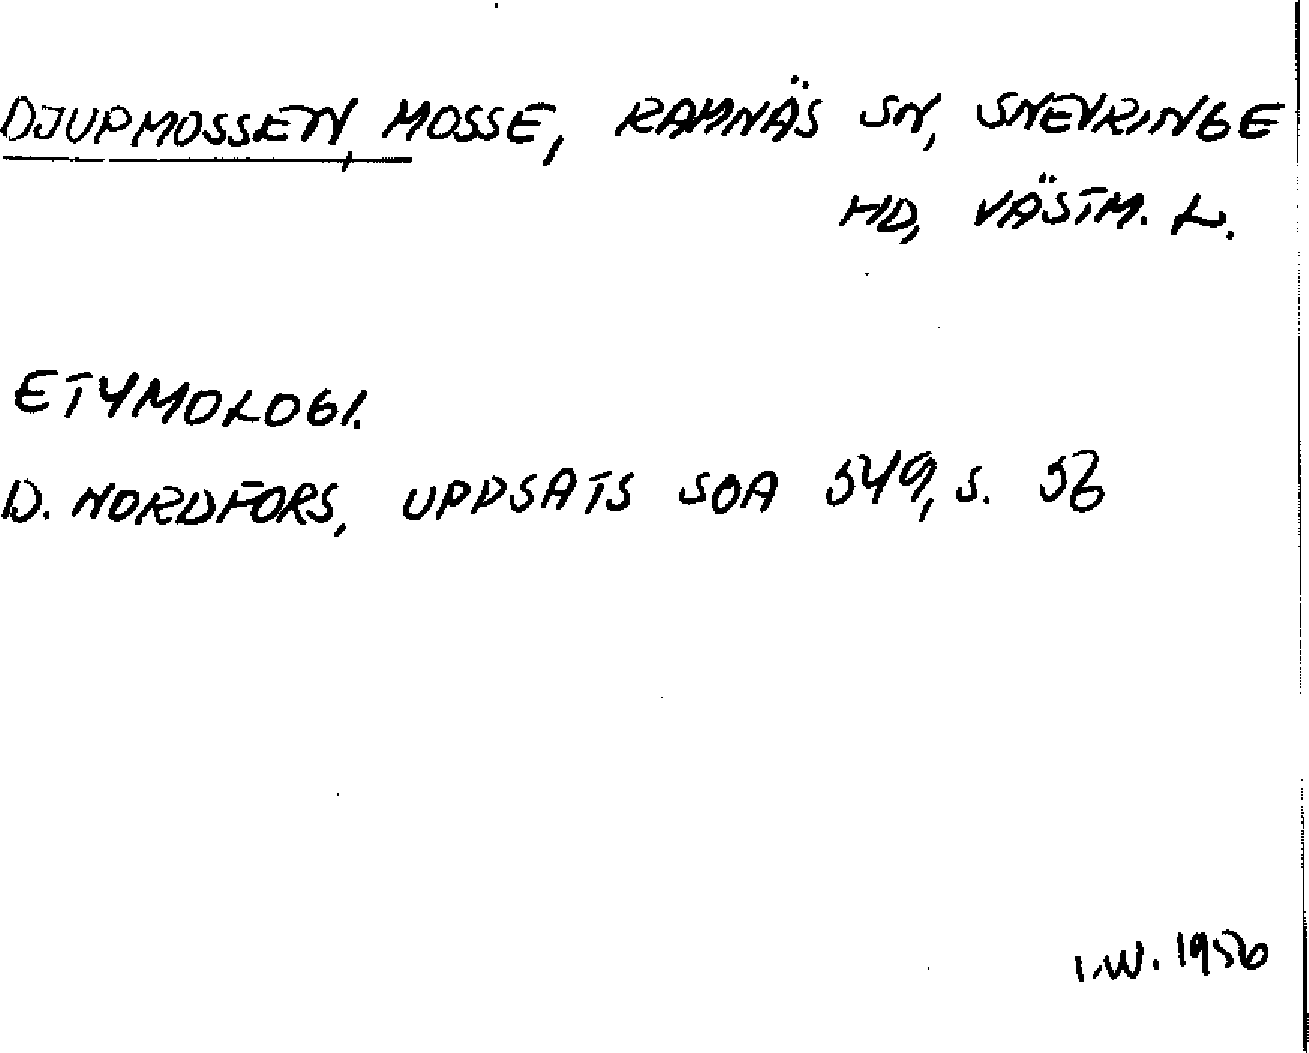 DJUPMOSSEN, MOSSE, RAMNÄS SN, SNEVRINGE
HD, VÄSTM. L.
ETYMOLOGI.
D. NORDFORS, UPPSATS SOA 549, S. 56
I.W. 1956